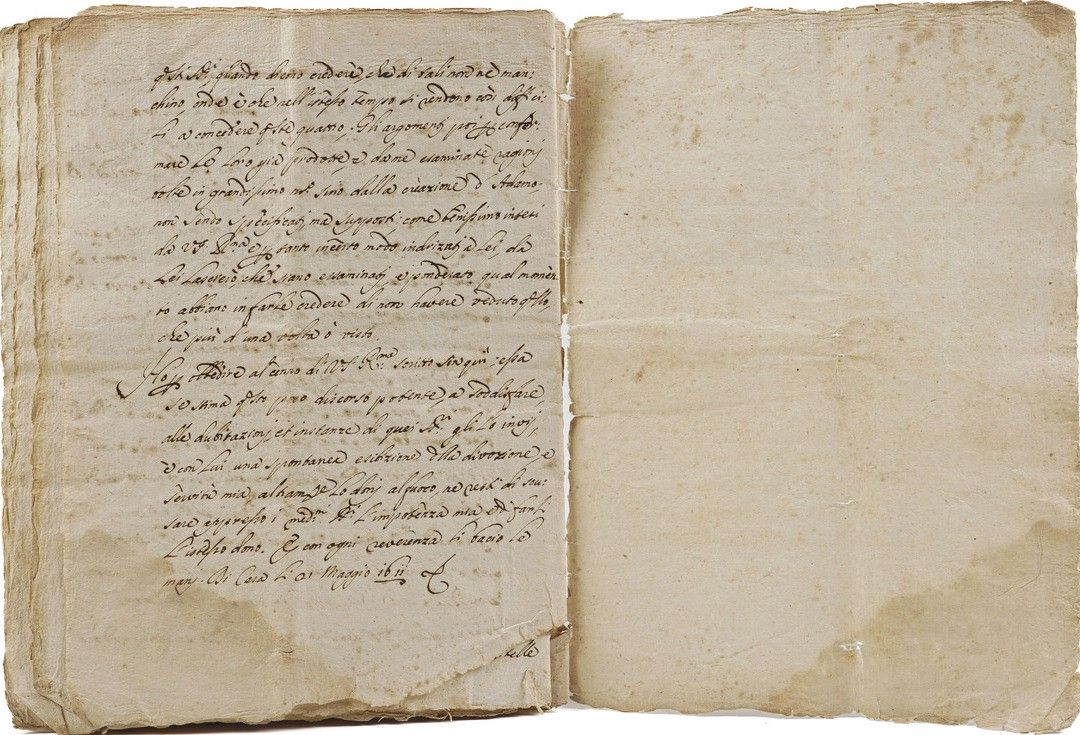 q.sti SS.ri quando dieno credere che di tali non ne man:
chino, onde è che nell'istesso tempo si rendono così diffici:
li a concedere q.ste quattro. Gli argomenti poi p confer:
mare le loro già prodotte, e da me esaminate ragioni
volte in grandissimo n.o sino dalla creazione d'Adamo
non sendo specificati, ma supposti come benissimo intesi
da V.S. R.ma e p tanto in certo modo indrizzati a Lei, da
Lei lascerò, che siano essaminati, e ponderato qual momen:
to abbiano in farle credere di non havere veduto q.llo,
che più d'una volta à visto.
Ho p obbedire al cenno di V.S. R.ma scritto sin qui: essa
se stima q.sto mio discorso potente a sodalisfare
alle dubitazioni, et instanze di quei SS.ri gli lo invij,
e con lui una spontanea esibizione della divozione, e
servitù mia, altram.te lo doni al fuoco, ne resti di scu:
sare appresso i med.mi SS.ri l'impotenza mia et di farli
l'istesso dono. Et con ogni reverenza li bacio le
mani. Di Casa li 21 Maggio 1611
stelle